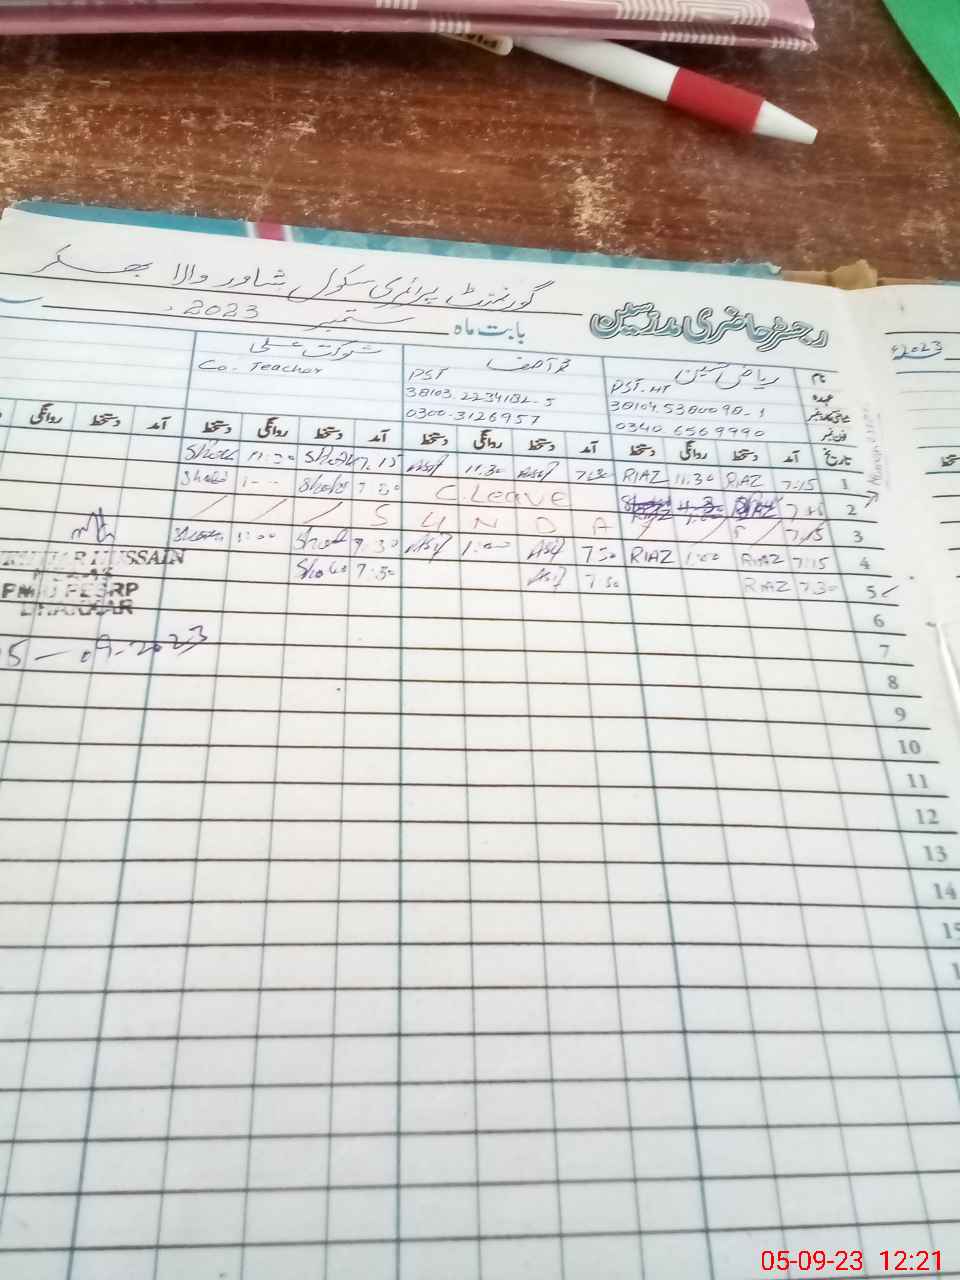 گورنمنٹ پرائمری سکول شاور والا بھکر
رجسٹر حاضری مدرسین
بابت ماہ ستمبر 2023
نام ریاض حسین محمد آصف شوکت علی
عہدہ PST-HT PST Co. Teacher
38104.5380098-1 38103.2234182-5
فون نمبر 0340 6569990 0300-3126957
تاریخ آمد دستخط روانگی دستخط آمد دستخط روانگی دستخط آمد دستخط روانگی دستخط آمد دستخط روانگی
1 7:15 RIAZ 11:30 RIAZ 7:30 Asif 11:30 Asif 7:15
2 C.Leave
3 S U N D A
4 7:15 RIAZ 1:00 RIAZ 7:50 Asif 1:00 Asif 7:30 1:00
5 7:30 RIAZ 7:50 Asif 7:30
6
7
8
9
10
11
12
13
14
HUSSAIN
BHAKKAR
05-09-2023
2023
05-09-23 12:21